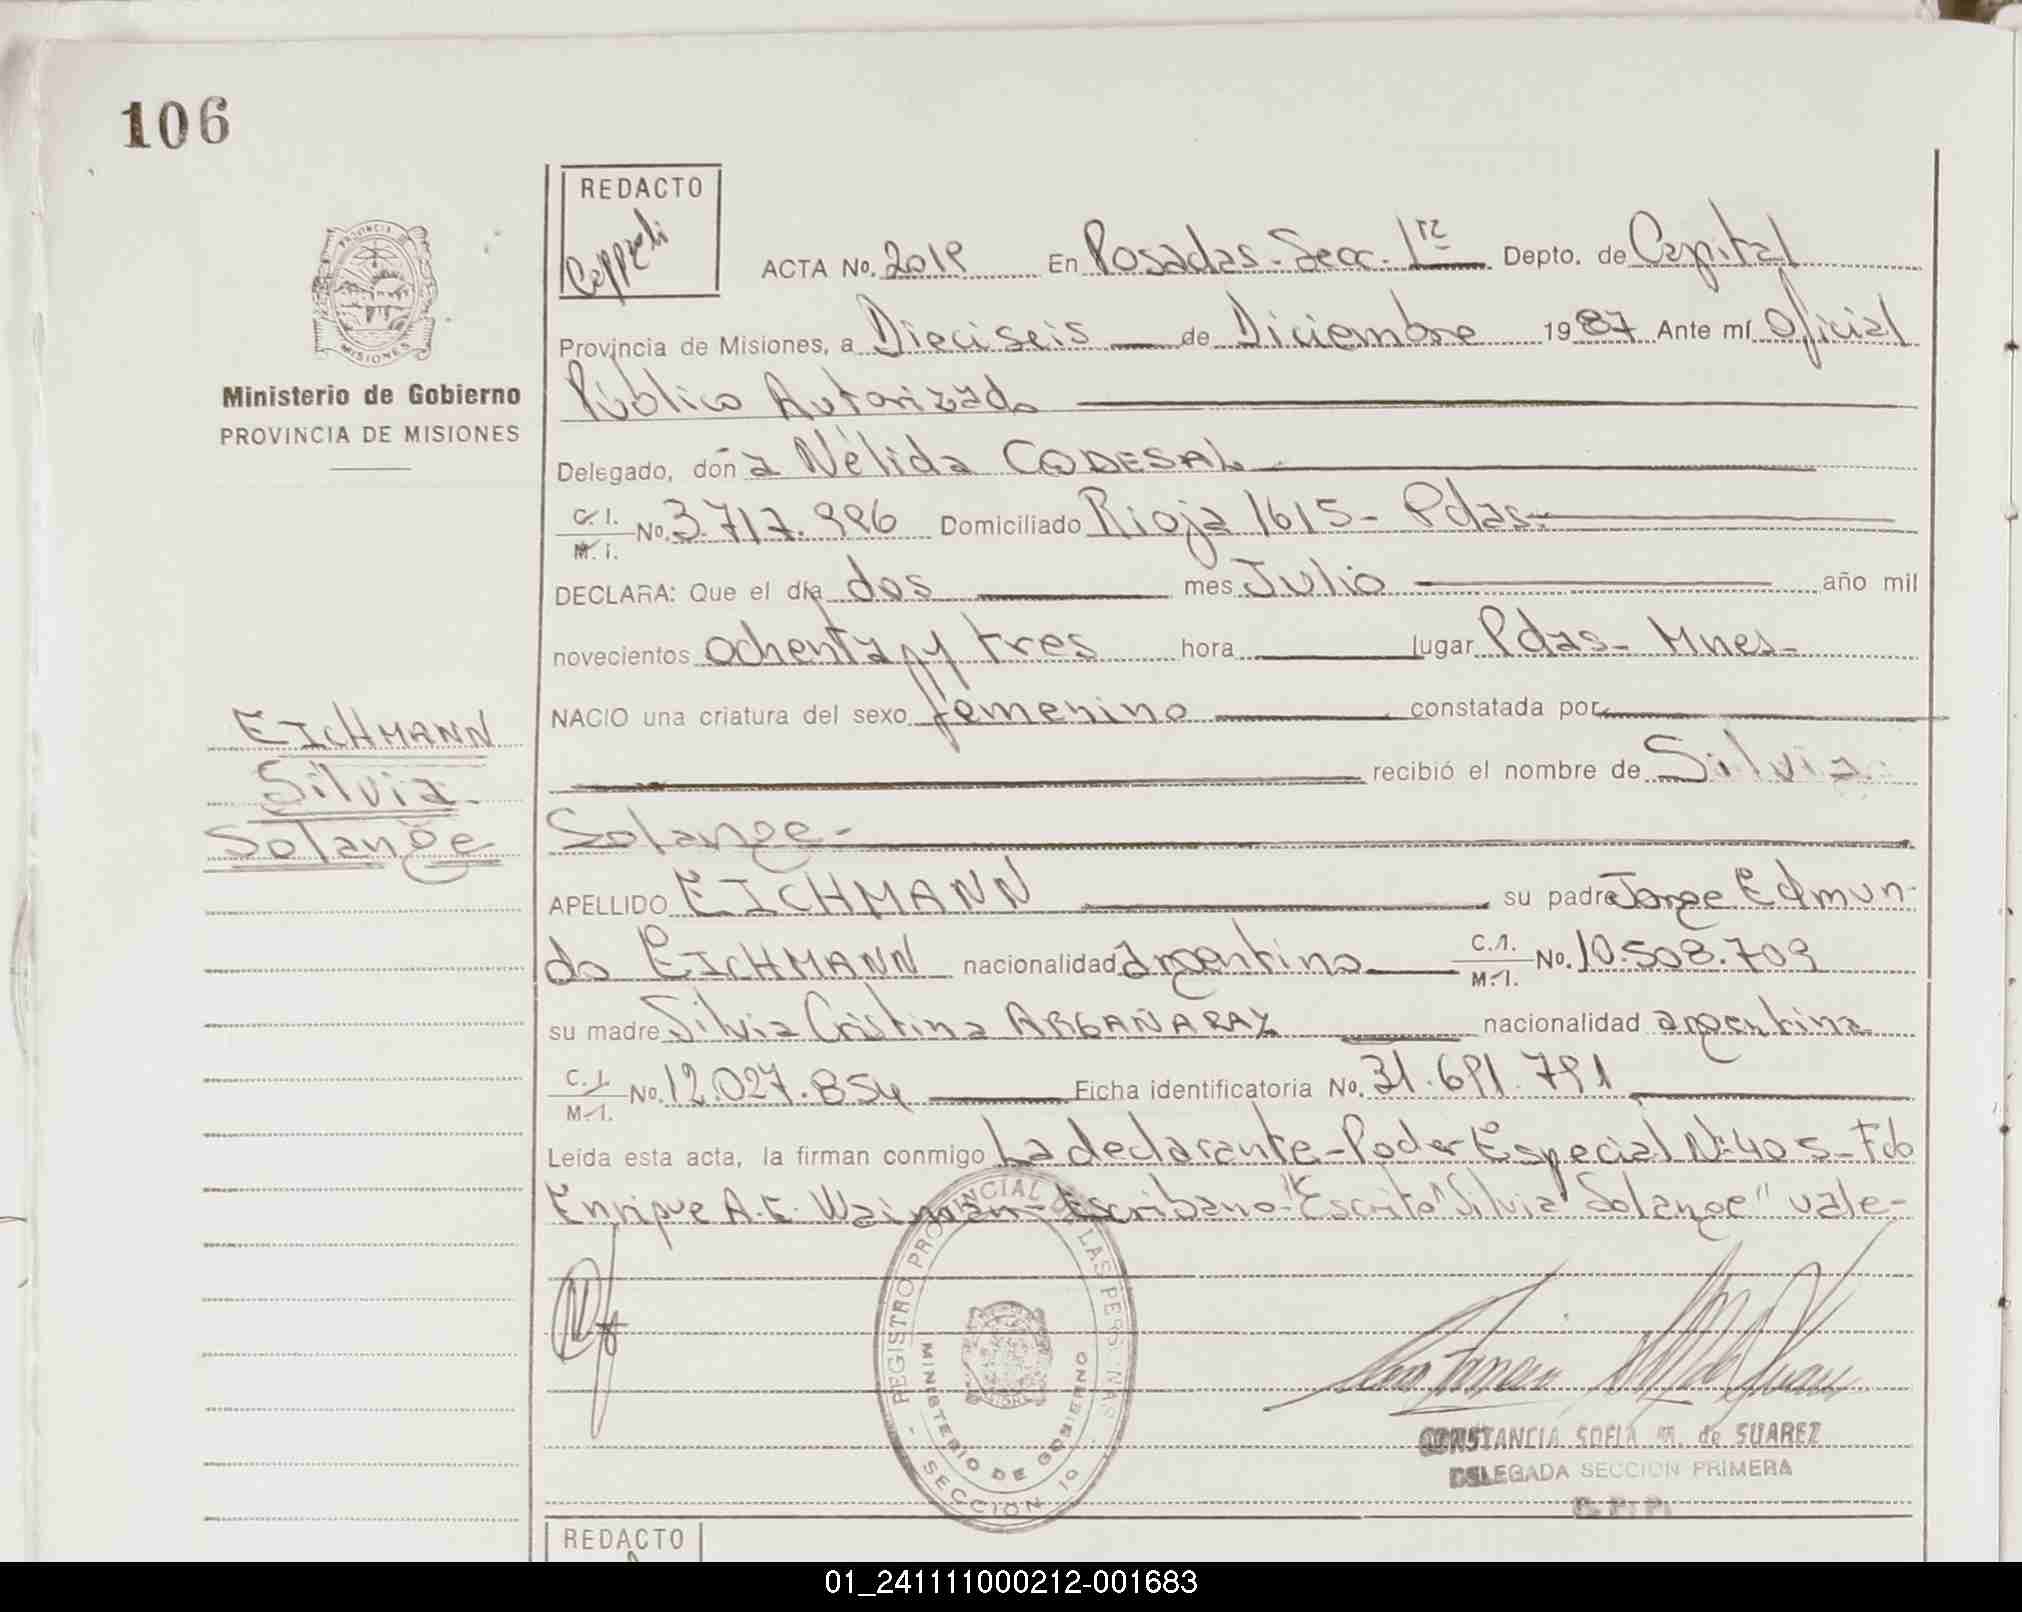 106
REDACTO
ACTA No. 2019 En Posadas - Secc. 1ra Depto. de Capital
Provincia de Misiones, a Dieciseis de Diciembre 1987 Ante mí Oficial
Público Autorizado
Delegado, doña Nélida CODESAL
C. I. M. I. No. 3.717.996 Domiciliado Rioja 1615 - Pdas.-
DECLARA: Que el día dos mes Julio año mil
novecientos ochenta y tres hora lugar Pdas - Mnes-
NACIO una criatura del sexo femenino constatada por
recibió el nombre de Silvia
Solange-
APELLIDO EICHMANN su padre Jorge Edmun-
do EICHMANN nacionalidad argentino C.I. M.I. No. 10.508.709
su madre Silvia Cristina ARGAÑARAZ nacionalidad argentina
C.I. M.I. No. 12.027.854 Ficha identificatoria No. 31.691.791
Leída esta acta, la firman conmigo La declarante - Poder Especial Nº 405 - Fdo
Enrique A.E. Waisman - Escribano - "Escrito" Silvia Solange" vale-
PROVINCIA DE MISIONES
Ministerio de Gobierno
PROVINCIA DE MISIONES
EICHMANN
Silvia
Solange
REGISTRO PROVINCIAL DE LAS PERSONAS
MINISTERIO DE GOBIERNO
- SECCION 1º -
CONSTANCIA SOFIA M. de SUAREZ
DELEGADA SECCION PRIMERA
REDACTO
01_241111000212-001683